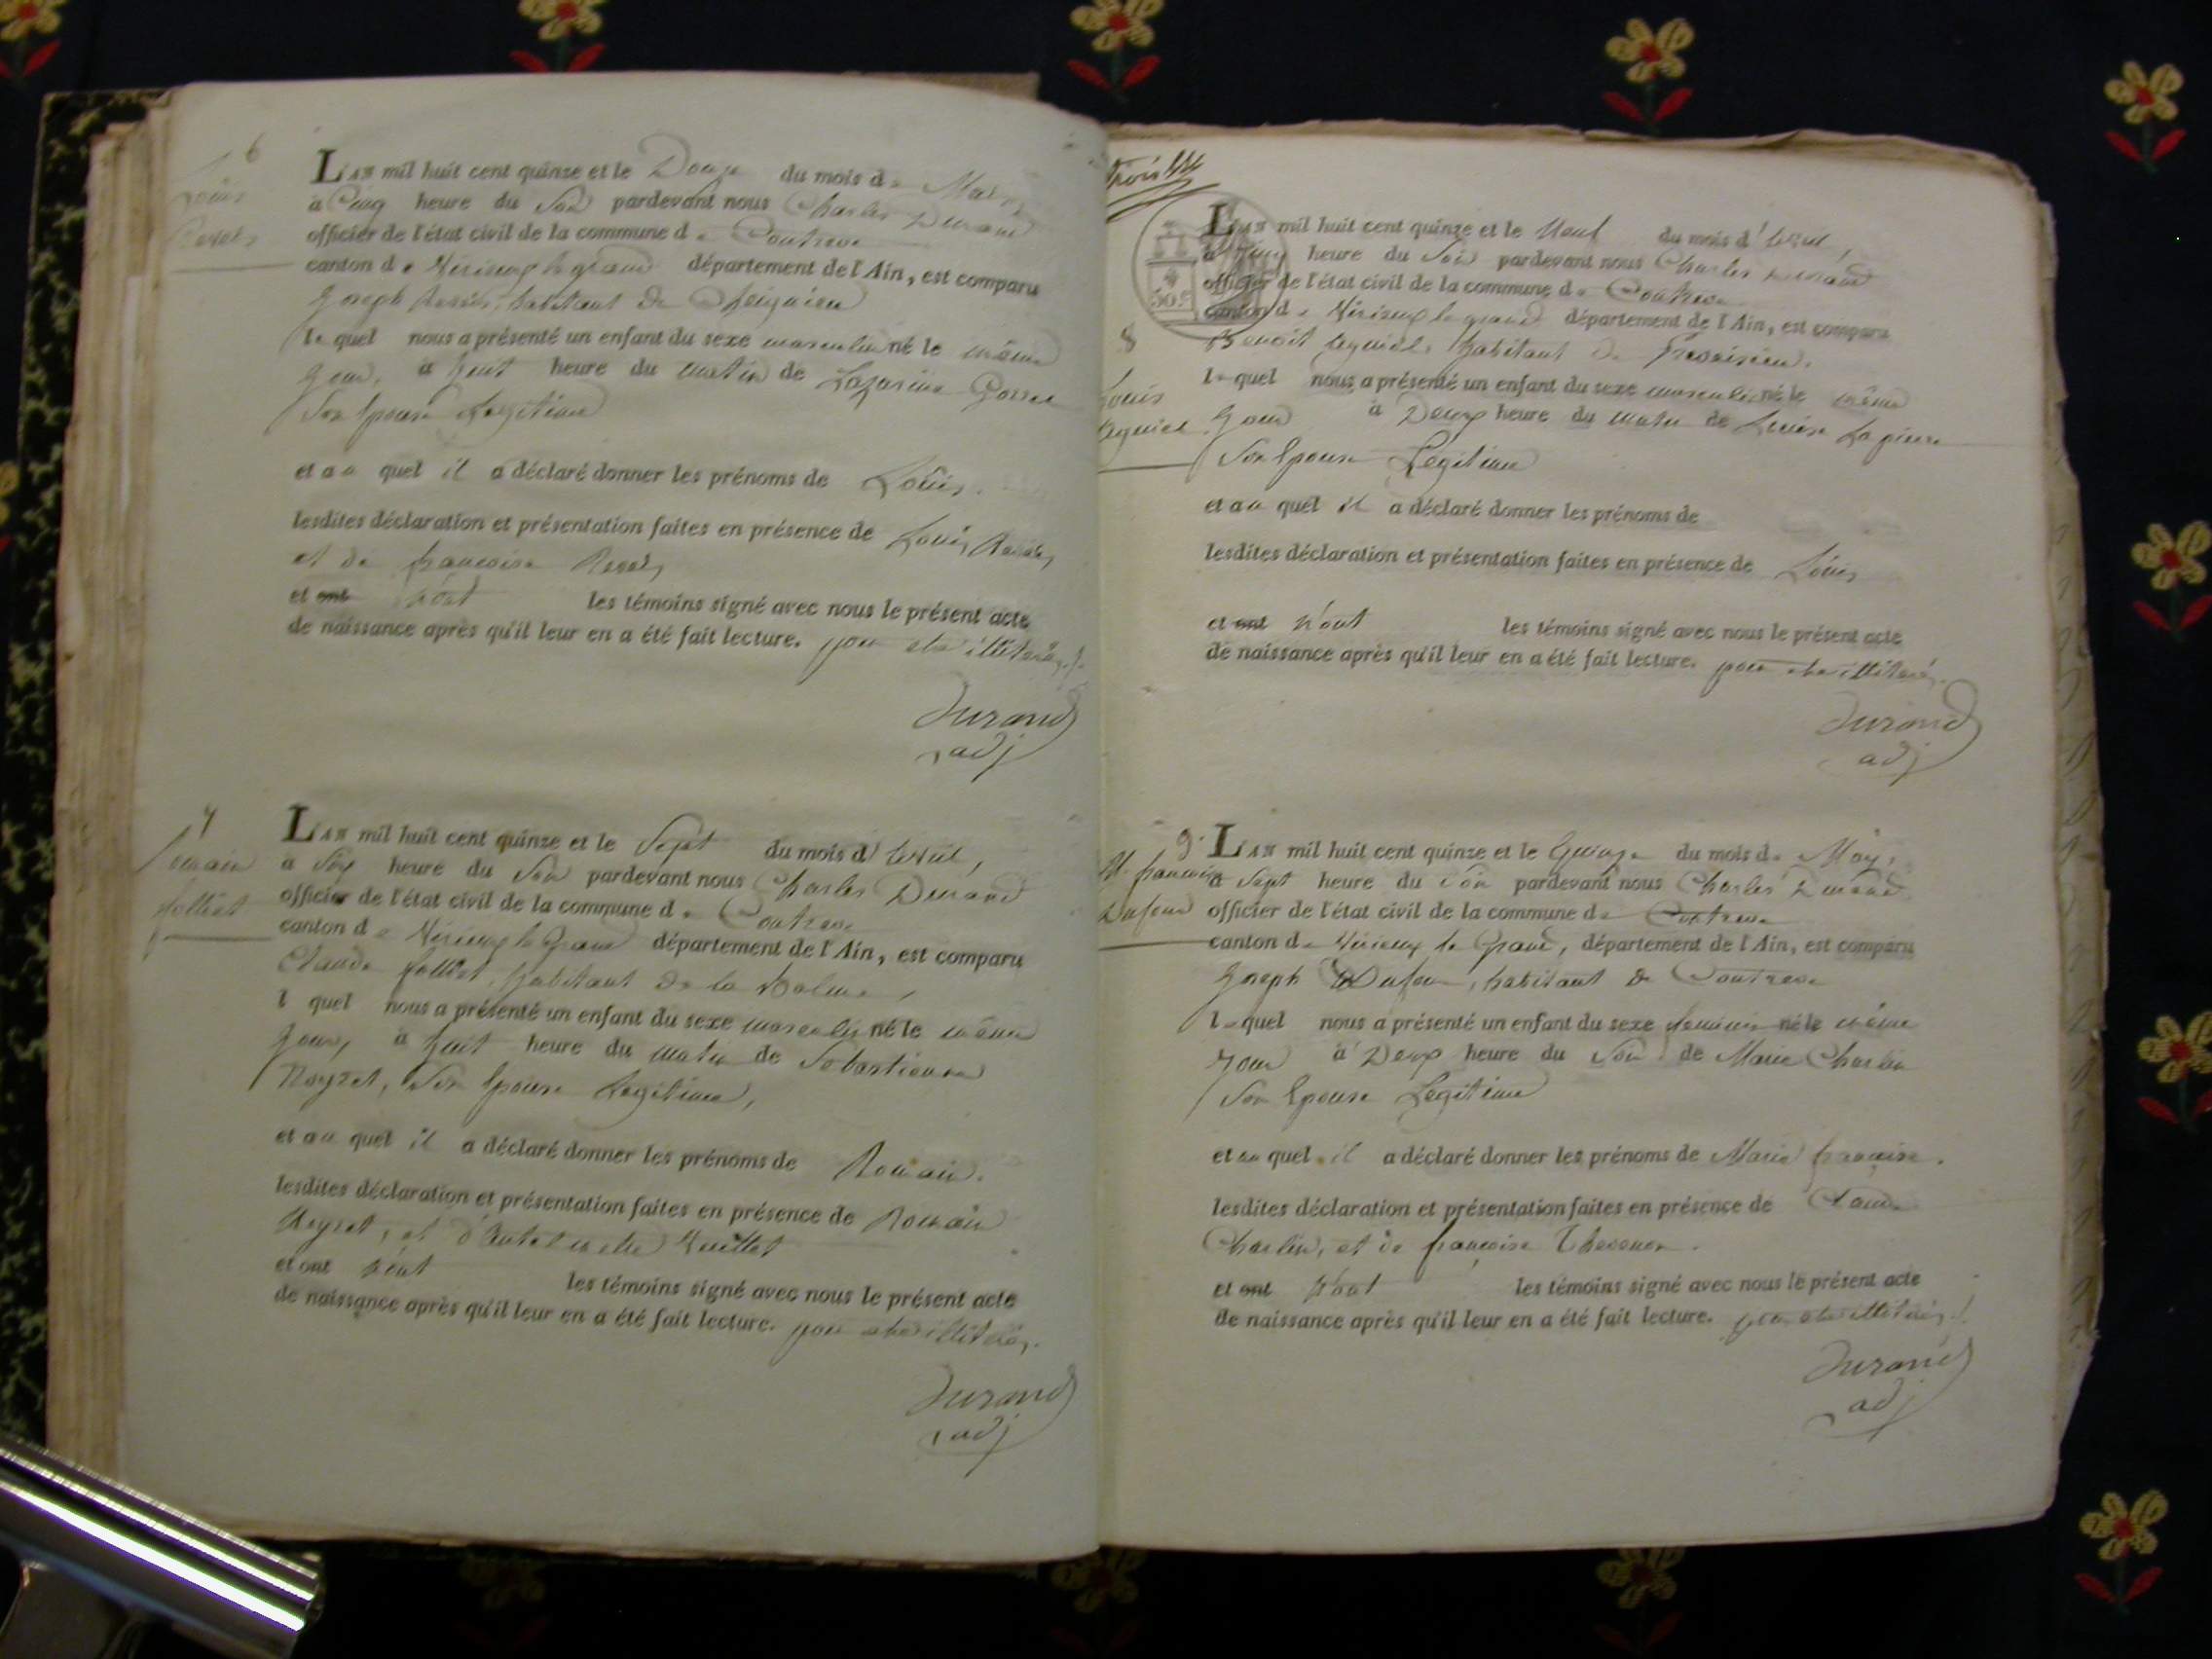 6
Louis
L'AN mil huit cent quinze et le Douze du mois de Mars,
à Cinq heure du Soir pardevant nous Charles Durand
officier de l'état civil de la commune de Contrevoz
canton de Virieux le grand département de l'Ain, est comparu
Joseph habitant de Cheignieu
le quel nous a présenté un enfant du sexe masculin né le même
Jour, à huit heure du matin de Lazarine
Son Epouse Legitime
et au quel il a déclaré donner les prénoms de Louis.
lesdites déclaration et présentation faites en présence de Louis
et de françoise
et ont n'ont les témoins signé avec nous le présent acte
de naissance après qu'il leur en a été fait lecture. pour etre illiterés.
Durand
adj
7
Romain
folliet
L'AN mil huit cent quinze et le Sept du mois d'avril,
à Six heure du Soir pardevant nous Charles Durand
officier de l'état civil de la commune de Contrevoz
canton de Virieux le Grand département de l'Ain, est comparu
Claude folliet, habitant de la Balme,
l quel nous a présenté un enfant du sexe masculin né le même
Jour, à huit heure du matin de Sebastienne
Reyret, Son Epouse Legitime,
et au quel il a déclaré donner les prénoms de Romain.
lesdites déclaration et présentation faites en présence de Romain
Reyret, et d'
et ont n'ont les témoins signé avec nous le présent acte
de naissance après qu'il leur en a été fait lecture. pour etre illiterés.
Durand
adj
trois
50 c
8
Louis
L'AN mil huit cent quinze et le Neuf du mois d'avril,
à cinq heure du Soir pardevant nous Charles Durand
officier de l'état civil de la commune de Contrevoz
canton de Virieux le grand département de l'Ain, est comparu
Benoit habitant de
le quel nous a présenté un enfant du sexe masculin né le même
Jour à Deux heure du matin de Louise La pierre
Son Epouse Legitime
et au quel il a déclaré donner les prénoms de
lesdites déclaration et présentation faites en présence de Louis
et ont n'ont les témoins signé avec nous le présent acte
de naissance après qu'il leur en a été fait lecture. pour etre illiterés.
Durand
adj
9.
M. françoise
Dufour
L'AN mil huit cent quinze et le Quinze du mois de May,
à Sept heure du Soir pardevant nous Charles Durand
officier de l'état civil de la commune de Contrevoz
canton de Virieux le Grand, département de l'Ain, est comparu
Joseph Dufour, habitant de Contrevoz
le quel nous a présenté un enfant du sexe feminin né le même
Jour à Deux heure du Soir de Marie Charlin
Son Epouse Legitime
et au quel il a déclaré donner les prénoms de Marie françoise.
lesdites déclaration et présentation faites en présence de Claude
Charlin, et de françoise Thevenon.
et ont n'ont les témoins signé avec nous le présent acte
de naissance après qu'il leur en a été fait lecture. pour etre illiterés.
Durand
adj